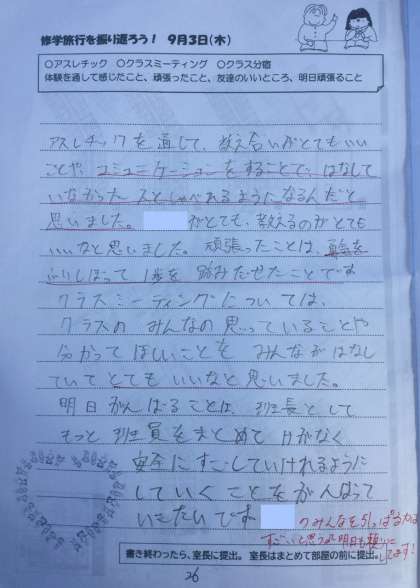 修学旅行を振り返ろう！ 9月3日(木)
○アスレチック ○クラスミーティング ○クラス分宿
体験を通して感じたこと、頑張ったこと、友達のいいところ、明日頑張ること
アスレチックを通じて、教え合いがとてもいい
ことや、コミュニケーションをすることで、はなして
いなかった人としゃべれるようになるんだと
思いました。 がとても、教えるのがとても
いいなと思いました。頑張ったことは、勇気を
ふりしぼって1歩を踏みだせたことです
クラスミーティングについては、
クラスのみんなの思っていることや
分かってほしいことをみんながはなし
ていてとてもいいなと思いました。
明日がんばることは、班長として
もっと班員をまとめてけがなく
安全にすごしていけれるように
していくことをがんばって
いきたいです
みんなを引っぱる力は
すごいと思うよ 明日も
してます!
書き終わったら、室長に提出。室長はまとめて部屋の前に提出。
26